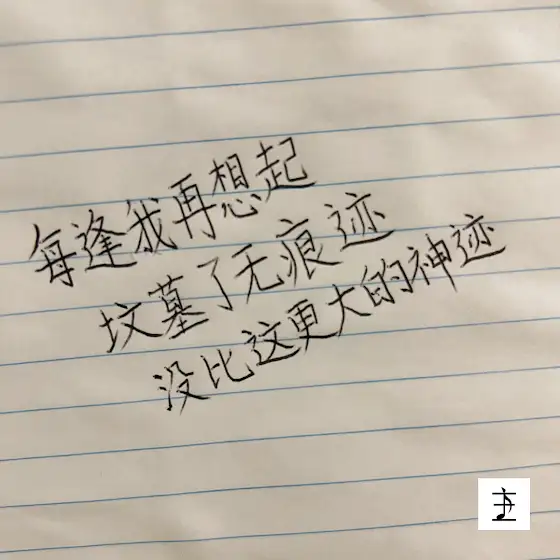 每逢我再想起
坟墓了无痕迹
没比这更大的神迹